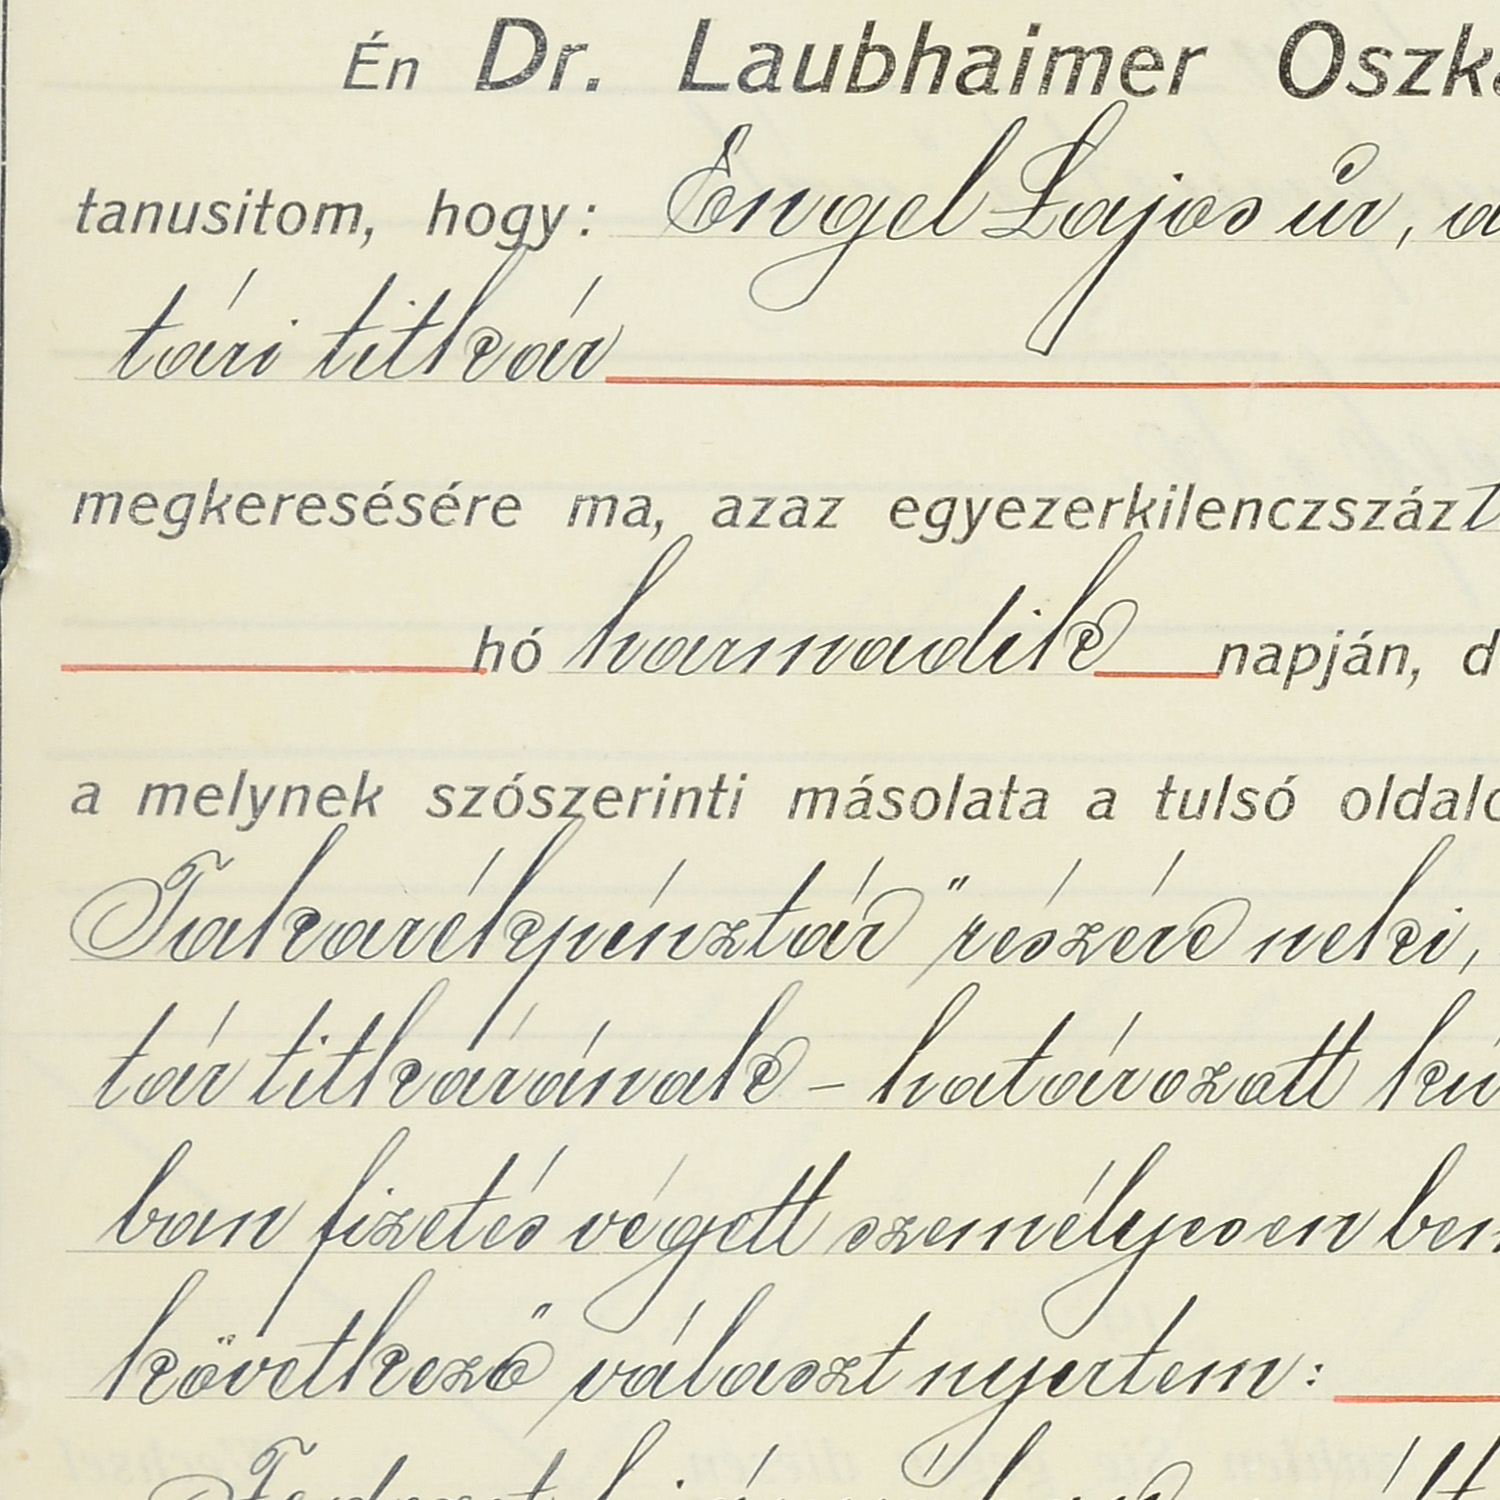 Én Dr. Laubhaimer Oszká
tanusitom, hogy: Engel Lajos úr, a
tári titkár
megkeresésére ma, azaz egyezerkilenczszáz
hó harmadik napján, d
a melynek szószerinti másolata a tulsó oldalo
Takarékpénztár" részére neki,
tár titkárának – határozott kú
ban fizetés végett személyesen bem
következő választ nyertem: